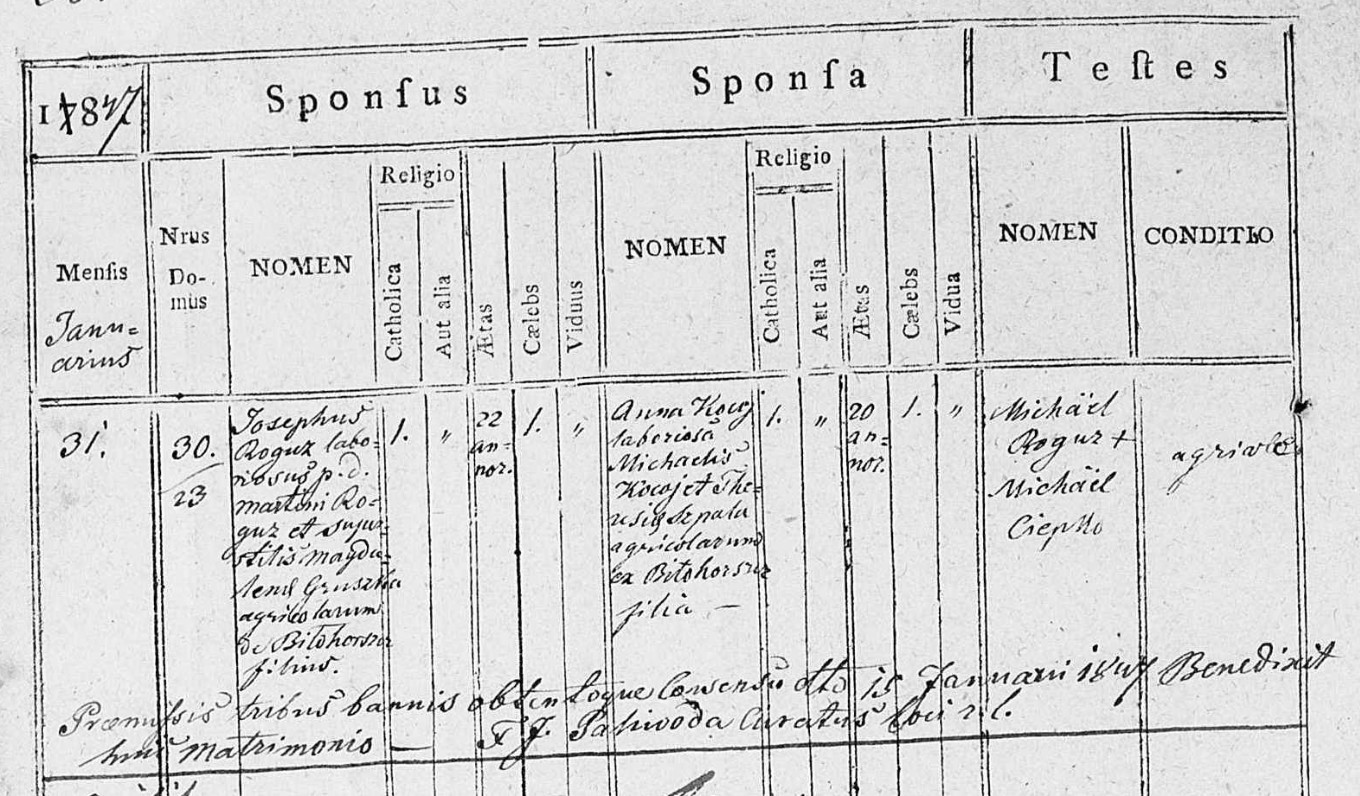 1847
Sponſus
Sponſa
Teſtes
Menſis
Janu=
arius
Nrus
Do-
mus
NOMEN
Religio
Catholica
Aut alia
Ætas
Cælebs
Viduus
NOMEN
Religio
Catholica
Aut alia
Ætas
Cælebs
Vidua
NOMEN
CONDITIO
31.
30.
23
Josephus
Roguz labo=
riosus p. d.
Martini Ro=
guz et
Magda=
lenę Gruszka
agricolarum
de Bilohorszcz
filius.
1.
„
22
an=
nor.
1.
„
Anna Kocoj
laboriosa
Michaelis
Kocoj et The=
resię Szpala
agricolarum
ex Bilohorszcz
filia —
1.
„
20
an=
nor.
1.
„
Michäel
Roguz +
Michäel
Ciepło
Præmissis tribus bannis obtentoque Consensu dtto 15 Januarii 1847 Benedixit
huic Matrimonio — F J. Paliwoda Curatus Loci r. l.